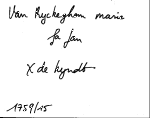 Van Ryckeghem marie
fa Jan
X de Kyndt
1759/15